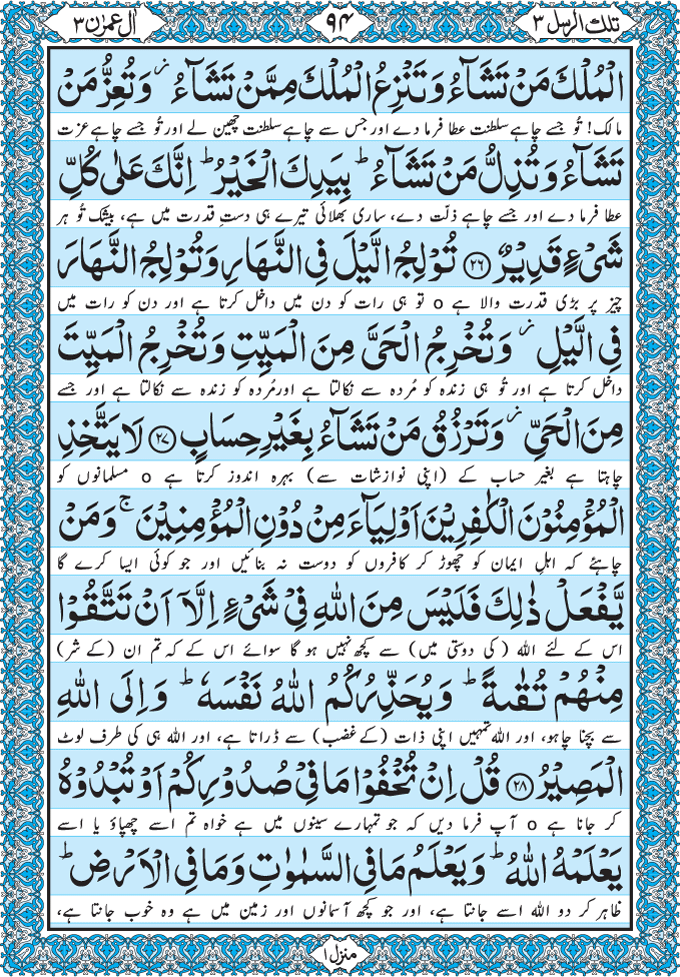 تلك الرسل ٣
٩٤
اٰل عمرٰن ٣
الْمُلْكَ مَنْ تَشَآءُ وَتَنْزِعُ الْمُلْكَ مِمَّنْ تَشَآءُ ؗ وَتُعِزُّ مَنْ
مالک! تُو جسے چاہے سلطنت عطا فرما دے اور جس سے چاہے سلطنت چھین لے اور تُو جسے چاہے عزت
تَشَآءُ وَتُذِلُّ مَنْ تَشَآءُ ؕ بِيَدِكَ الْخَيْرُ ؕ اِنَّكَ عَلٰى كُلِّ
عطا فرما دے اور جسے چاہے ذلّت دے، ساری بھلائی تیرے ہی دستِ قدرت میں ہے، بیشک تُو ہر
شَيْءٍ قَدِيْرٌ ﴿٢٦﴾ تُوْلِجُ الَّيْلَ فِي النَّهَارِ وَتُوْلِجُ النَّهَارَ
چیز پر بڑی قدرت والا ہے o تو ہی رات کو دن میں داخل کرتا ہے اور دن کو رات میں
فِي الَّيْلِ ؗ وَتُخْرِجُ الْحَيَّ مِنَ الْمَيِّتِ وَتُخْرِجُ الْمَيِّتَ
داخل کرتا ہے اور تُو ہی زندہ کو مُردہ سے نکالتا ہے اورمُردہ کو زندہ سے نکالتا ہے اور جسے
مِنَ الْحَيِّ ؗ وَتَرْزُقُ مَنْ تَشَآءُ بِغَيْرِ حِسَابٍ ﴿٢٧﴾ لَا يَتَّخِذِ
چاہتا ہے بغیر حساب کے (اپنی نوازشات سے) بہرہ اندوز کرتا ہے o مسلمانوں کو
الْمُؤْمِنُوْنَ الْكٰفِرِيْنَ اَوْلِيَآءَ مِنْ دُوْنِ الْمُؤْمِنِيْنَ ۚ وَمَنْ
چاہئے کہ اہلِ ایمان کو چھوڑ کر کافروں کو دوست نہ بنائیں اور جو کوئی ایسا کرے گا
يَّفْعَلْ ذٰلِكَ فَلَيْسَ مِنَ اللهِ فِيْ شَيْءٍ اِلَّآ اَنْ تَتَّقُوْا
اس کے لئے اللہ (کی دوستی میں) سے کچھ نہیں ہو گا سوائے اس کے کہ تم ان (کے شر)
مِنْهُمْ تُقٰىةً ؕ وَيُحَذِّرُكُمُ اللهُ نَفْسَهٗ ؕ وَاِلَى اللهِ
سے بچنا چاہو، اور اللہ تمہیں اپنی ذات (کےغضب) سے ڈراتا ہے، اور اللہ ہی کی طرف لوٹ
الْمَصِيْرُ ﴿٢٨﴾ قُلْ اِنْ تُخْفُوْا مَا فِيْ صُدُوْرِكُمْ اَوْ تُبْدُوْهُ
کر جانا ہے o آپ فرما دیں کہ جو تمہارے سینوں میں ہے خواہ تم اسے چھپاؤ یا اسے
يَعْلَمْهُ اللهُ ؕ وَيَعْلَمُ مَا فِي السَّمٰوٰتِ وَمَا فِي الْاَرْضِ ؕ
ظاہر کر دو اللہ اسے جانتا ہے، اور جو کچھ آسمانوں اور زمین میں ہے وہ خوب جانتا ہے،
منزل ١